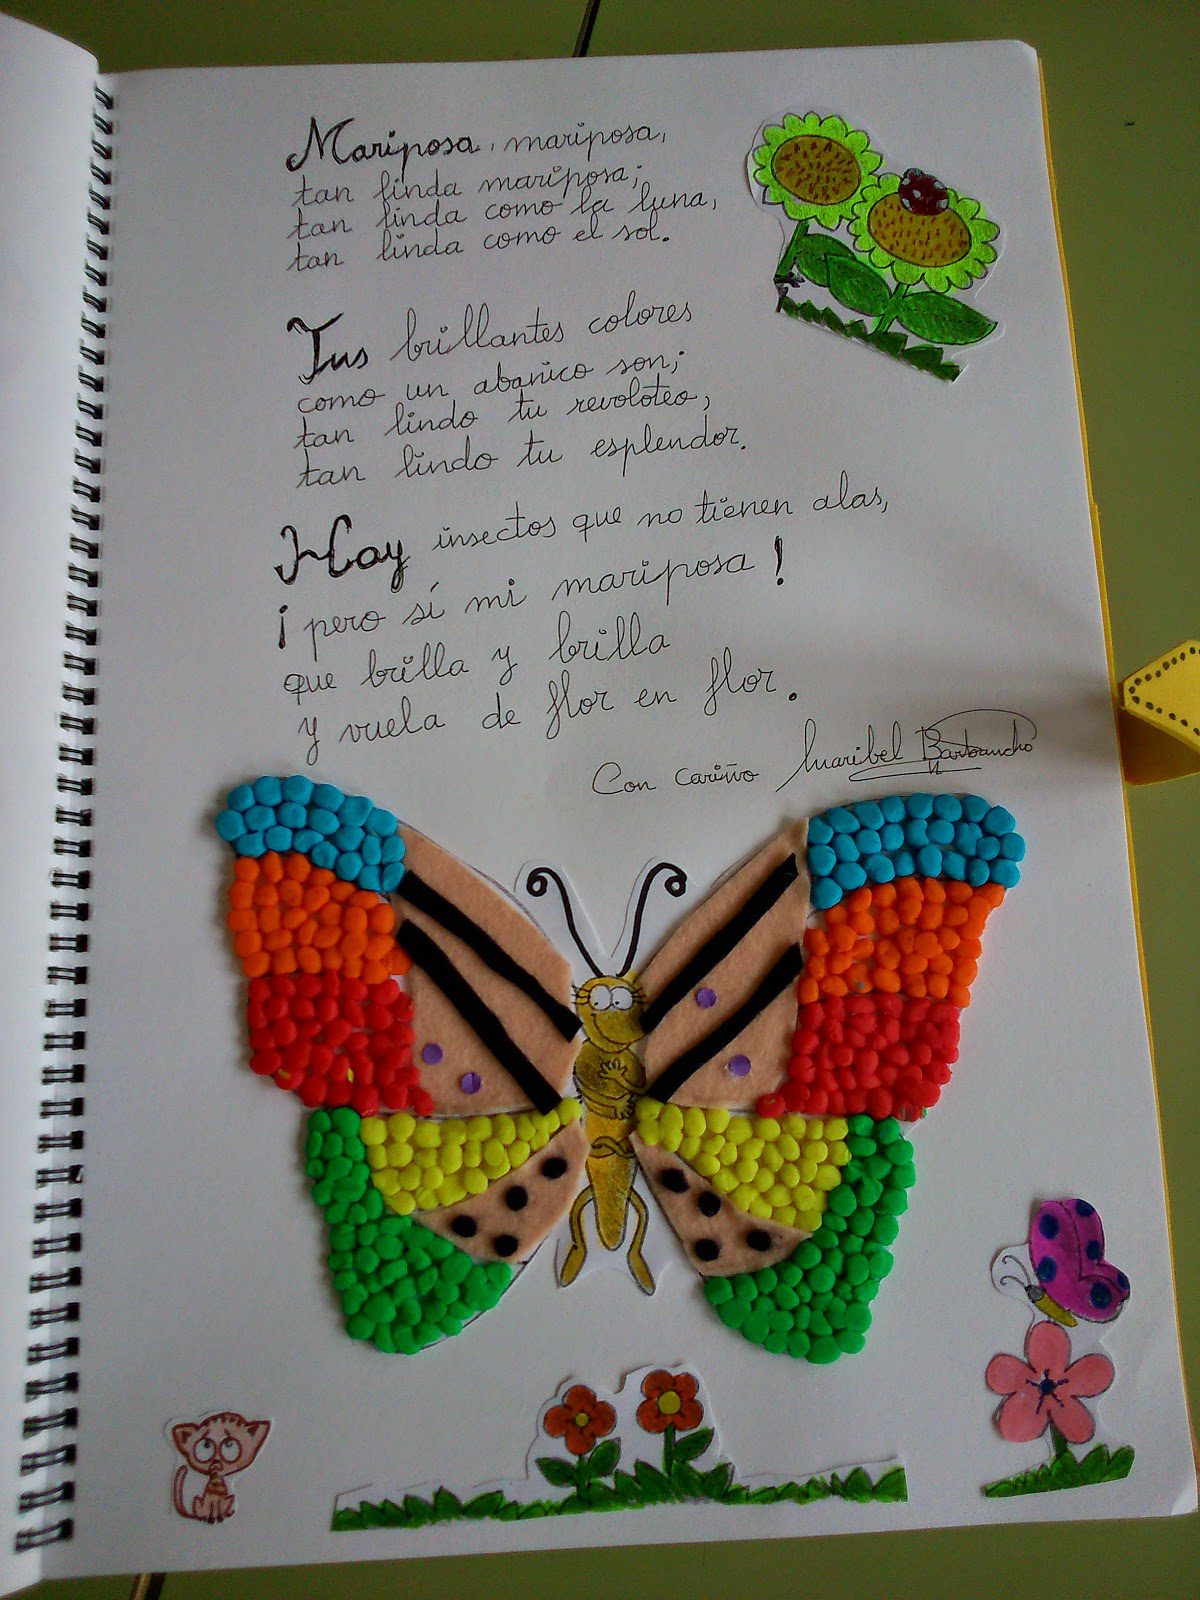 Mariposa, mariposa,
tan linda mariposa;
tan linda como la luna,
tan linda como el sol.
Tus brillantes colores
como un abanico son;
tan lindo tu revoloteo,
tan lindo tu esplendor.
Hay insectos que no tienen alas,
¡pero sí mi mariposa!
que brilla y brilla
y vuela de flor en flor.
Con cariño Maribel